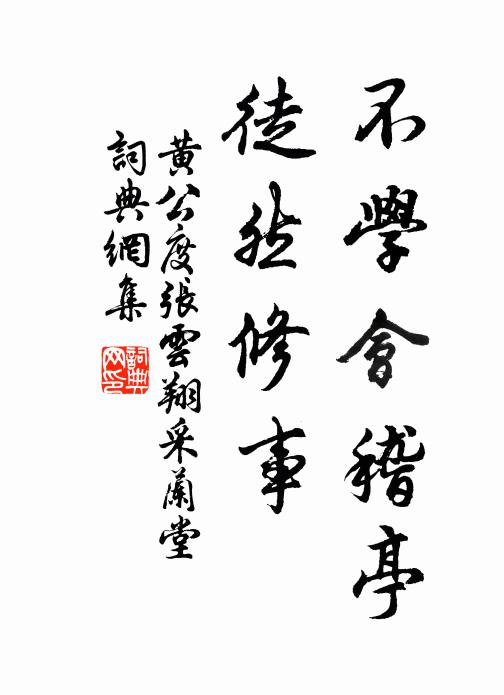 不學會稽亭
徒然修事
黃公度張雲翔采蘭堂
詞典網集
詞典
网印